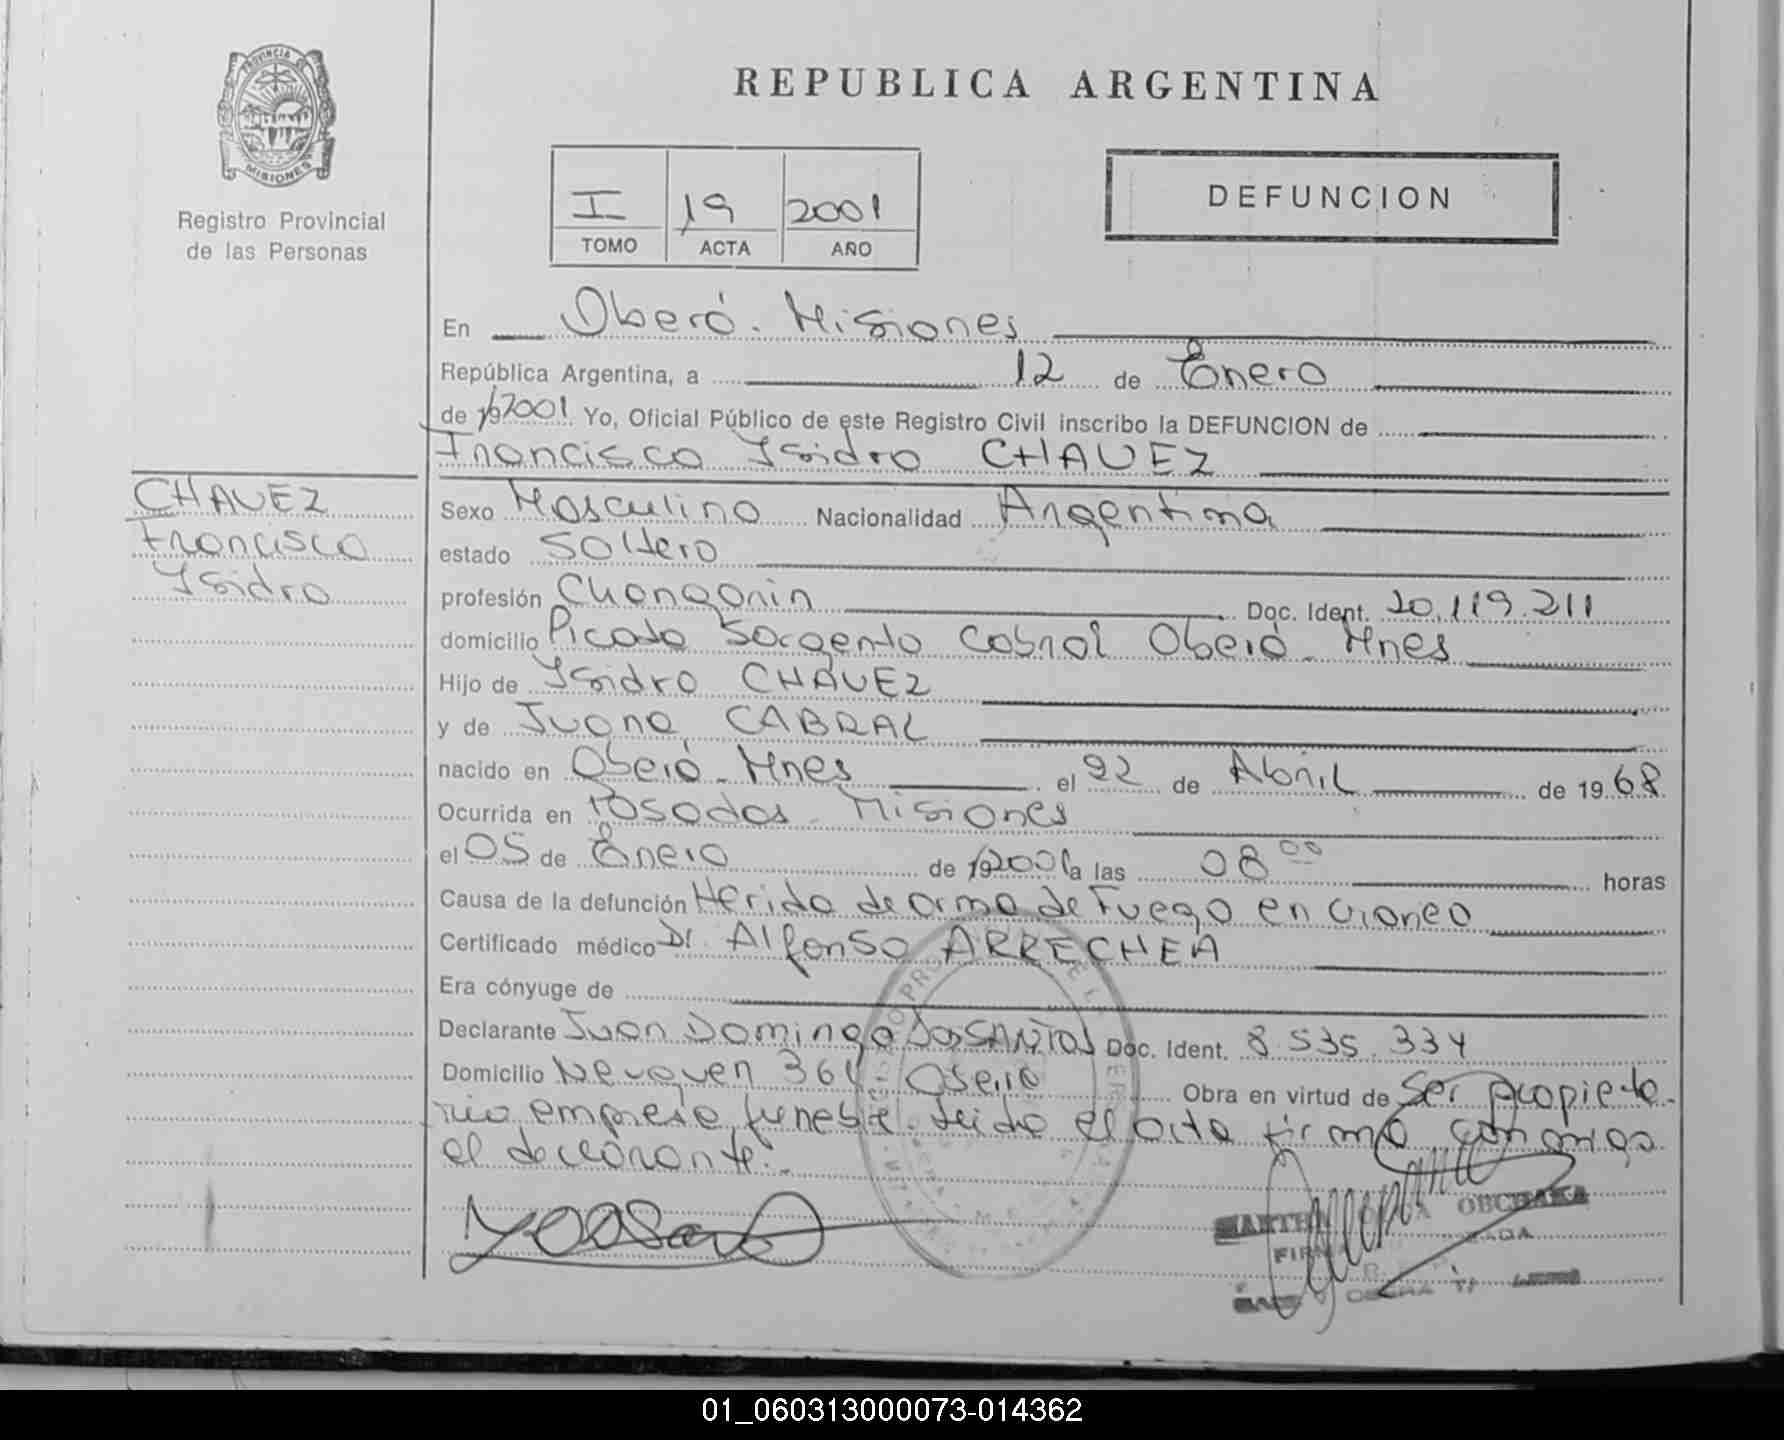 PROVINCIA DE
MISIONES
Registro Provincial
de las Personas
REPUBLICA ARGENTINA
I 19 2001
TOMO ACTA AÑO
DEFUNCION
En Oberá. Misiones
República Argentina, a 12 de Enero
de 19 2001 Yo, Oficial Público de este Registro Civil inscribo la DEFUNCION de
Francisco Ysidro CHAVEZ
CHAVEZ
Francisco
Ysidro
Sexo Masculino Nacionalidad Argentina
estado Soltero
profesión Changarin Doc. Ident. 20.119.211
domicilio Picada Sargento Cabral Oberá - Mnes
Hijo de Ysidro CHAVEZ
y de Juana CABRAL
nacido en Oberá - Mnes el 22 de Abril de 19 68
Ocurrida en Posadas - Misiones
el 05 de Enero de 19 2001 a las 08 00 horas
Causa de la defunción Herida de arma de Fuego en craneo
Certificado médico Dr. Alfonso ARRECHEA
Era cónyuge de
Declarante Juan Domingo DosSANTOS Doc. Ident. 8.535.334
Domicilio Neuquen 364 - Oberá Obra en virtud de Ser propieta-
rio empresa funebre. Leida el acta firma con migo
el declarante.-
OBERA
01_060313000073-014362